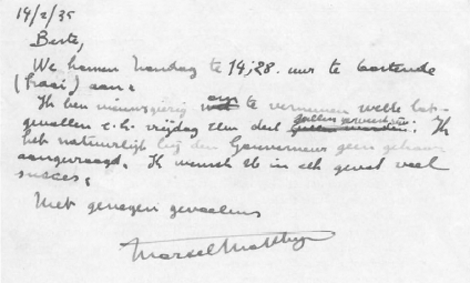 14/2/35
Beste,
We komen Zondag te 14,28. uur te Oostende
aan.
Ik ben nieuwsgierig om te vernemen welke lot-
gevallen e.k. vrijdag Uw deel zullen geweest zijn. Ik
heb natuurlijk bij den Gouverneur geen gehoor
aangevraagd. Ik wensch U in elk geval veel
succes.
Met genegen gevoelens